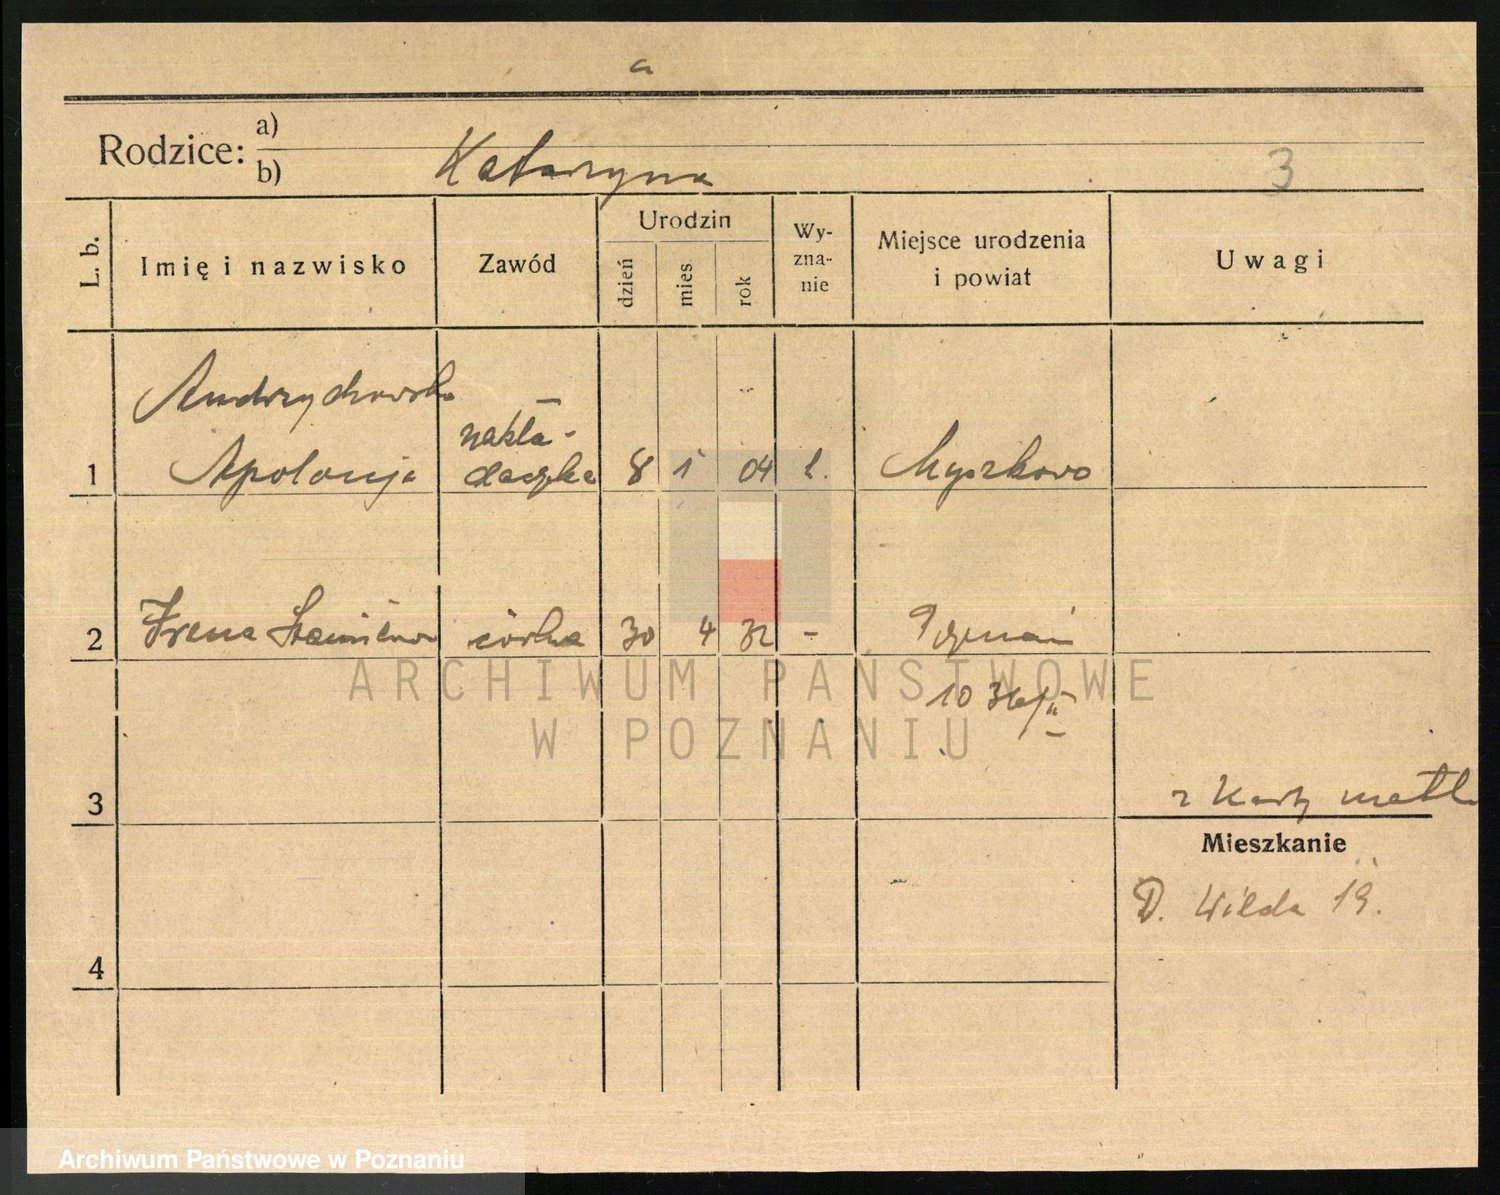 a
Rodzice: a)
b) Katarzyna
3
L. b.
Imię i nazwisko
Zawód
Urodzin
dzień
mies
rok
Wy-
zna-
nie
Miejsce urodzenia
i powiat
Uwagi
Andrzychowska
nakła-
1 Apolonja daczka 8 1 04 k. Myszkowo
2 Irena córka 30 4 32 - Poznań
ARCHIWUM PAŃSTWOWE
10 36/II
W POZNANIU
3
z Karty
Mieszkanie
D. Wilda 19.
4
Archiwum Państwowe w Poznaniu